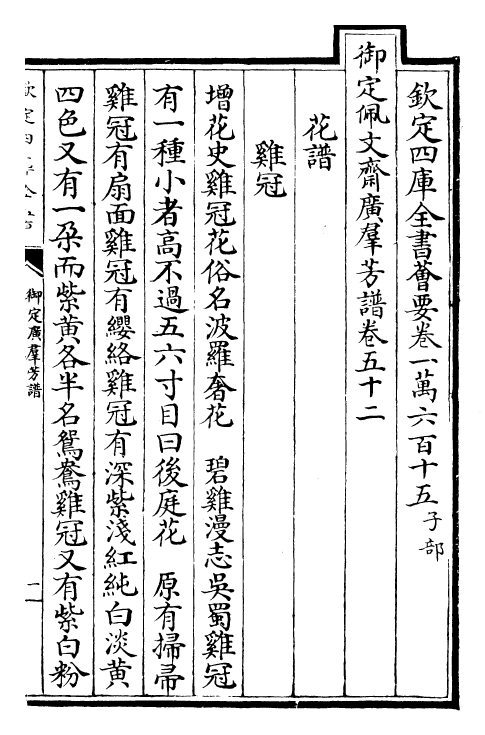 欽定四庫全書薈要卷一萬六百十五子部
御定佩文齋廣羣芳譜卷五十二
花譜
雞冠
增花史雞冠花俗名波羅奢花　碧雞漫志吳蜀雞冠
有一種小者高不過五六寸目曰後庭花　原有掃帚
雞冠有扇面雞冠有纓絡雞冠有深紫淺紅純白淡黃
四色又有一朶而紫黃各半名鴛鴦雞冠又有紫白粉
御定廣羣芳譜
一